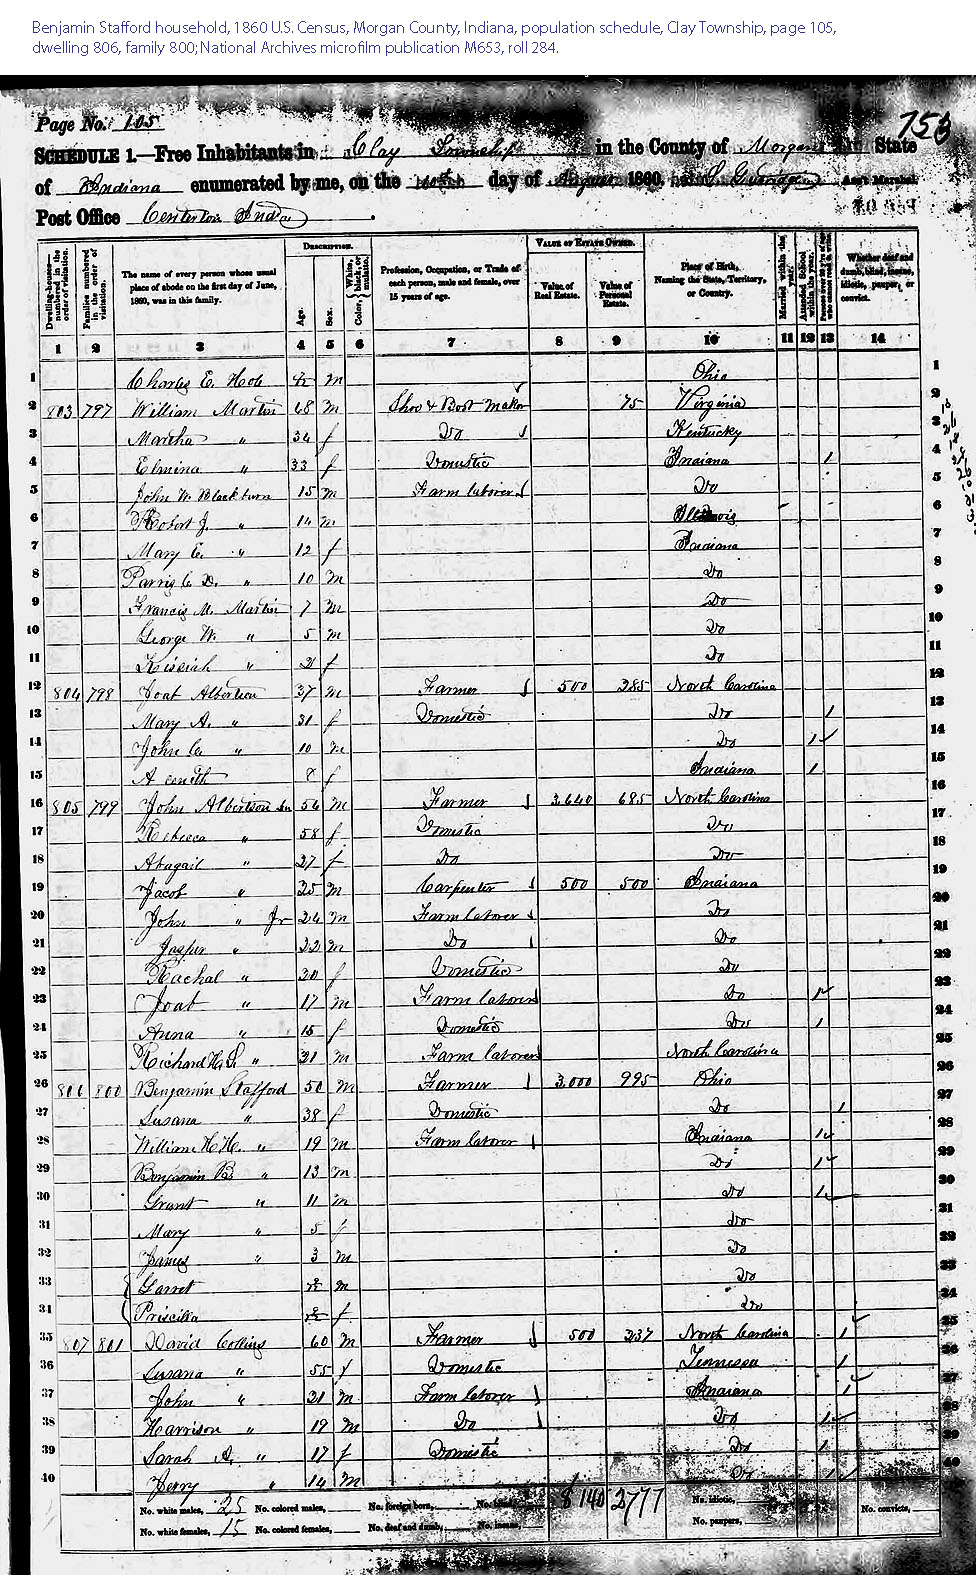 Benjamin Stafford household, 1860 U.S. Census, Morgan County, Indiana, population schedule, Clay Township, page 105,
dwelling 806, family 800; National Archives microfilm publication M653, roll 284.
Page No. 105
753
SCHEDULE 1.—Free Inhabitants in Clay Township in the County of Morgan State
of Indiana enumerated by me, on the day of August 1860. Ass't Marshal.
Post Office Centerton Inda
DESCRIPTION. VALUE OF ESTATE OWNED.
Dwelling-houses numbered in the order of visitation. Families numbered in the order of visitation. The name of every person whose usual place of abode on the first day of June, 1860, was in this family. Age. Sex. Color, White, black, or mulatto. Profession, Occupation, or Trade of each person, male and female, over 15 years of age. Value of Real Estate. Value of Personal Estate. Place of Birth, Naming the State, Territory, or Country. Married within the year. Attended School within the year. Persons over 20 years of age who cannot read & write. Whether deaf and dumb, blind, insane, idiotic, pauper, or convict.
1 2 3 4 5 6 7 8 9 10 11 12 13 14
1 Charles E. m Ohio 1
2 803 797 William Martin 68 m Shoe & Boot Maker 75 Virginia 2
3 Martha " 34 f Do Kentucky 3
4 Elmina " 33 f Domestic Indiana 1 4
5 John W. Blackburn 15 m Farm laborer Do 5
6 Robert J. " 14 m Illinois 6
7 Mary E. " 12 f Indiana 7
8 Parris C. D. " 10 m Do 8
9 Francis M. Martin 7 m Do 9
10 George W. " 5 m Do 10
11 Kissiah " f Do 11
12 804 798 Joat Albertson 37 m Farmer 500 385 North Carolina 12
13 Mary A. " 31 f Domestic Do 1 13
14 John C. " 10 m Do 1 14
15 Aseneth 8 f Indiana 1 15
16 805 799 John Albertson Sr 56 m Farmer 3,640 685 North Carolina 16
17 Rebecca " 58 f Domestic Do 17
18 Abagail " 27 f Do Do 18
19 Jacob " 25 m Carpenter 500 500 Indiana 19
20 John " Jr 24 m Farm laborer Do 20
21 Jasper " 22 m Do Do 21
22 Rachal " 20 f Domestic Do 22
23 Joat " 17 m Farm laborer Do 1 23
24 Anna " 15 f Domestic Do 1 24
25 Richard H. S. " 21 m Farm laborer North Carolina 25
26 806 800 Benjamin Stafford 50 m Farmer 3,000 995 Ohio 26
27 Susana " 38 f Domestic Do 1 27
28 William H. H. " 19 m Farm laborer Indiana 1 28
29 Benjamin B. " 13 m Do 1 29
30 Grant " 11 m Do 1 30
31 Mary " 5 f Do 31
32 James " 3 m Do 32
33 Garret m Do 33
34 Priscilla f Do 34
35 807 801 David Collins 60 m Farmer 500 337 North Carolina 1 35
36 Susana " 55 f Domestic Tennessee 1 36
37 John " 21 m Farm laborer Indiana 1 37
38 Harrison " 19 m Do Do 1 38
39 Sarah A. " 17 f Domestic Do 1 39
40 Jerry " 14 m Do 1 40
No. white males, 25 No. colored males, No. foreign born, No. blind, 8140 2777 No. idiotic, No. convicts,
No. white females, 15 No. colored females, No. deaf and dumb, No. insane, No. paupers,